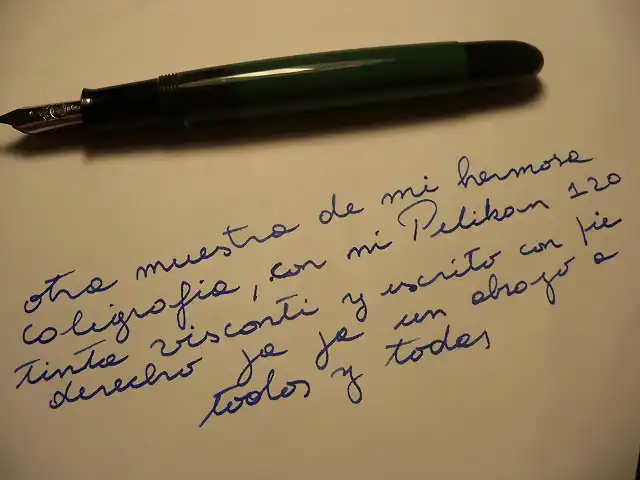 otra muestra de mi hermosa
caligrafia, con mi Pelikan 120
tinta visconti y escrito con pie
derecho ja ja un abrazo a
todos y todas